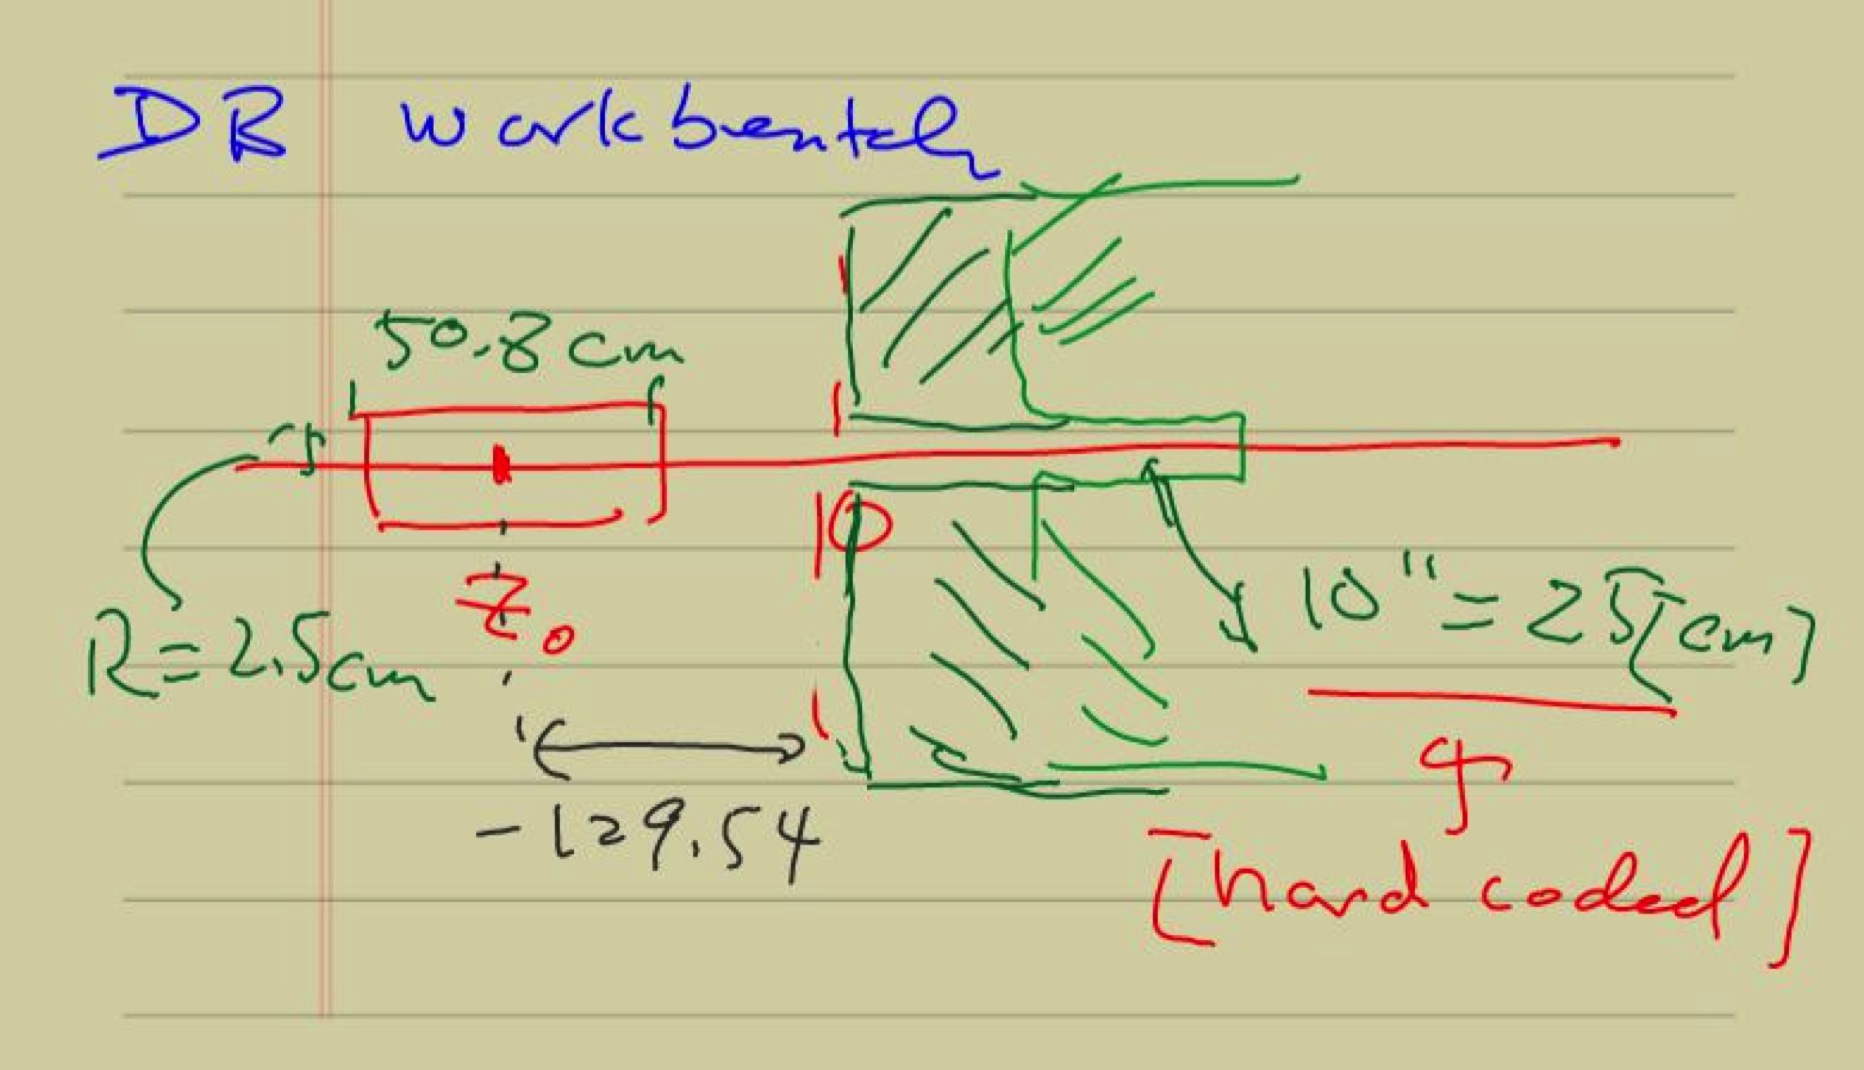 DB workbentch
50.8 cm
R=2.5cm
Z0
10"=25[cm]
-129.54
[hard coded]